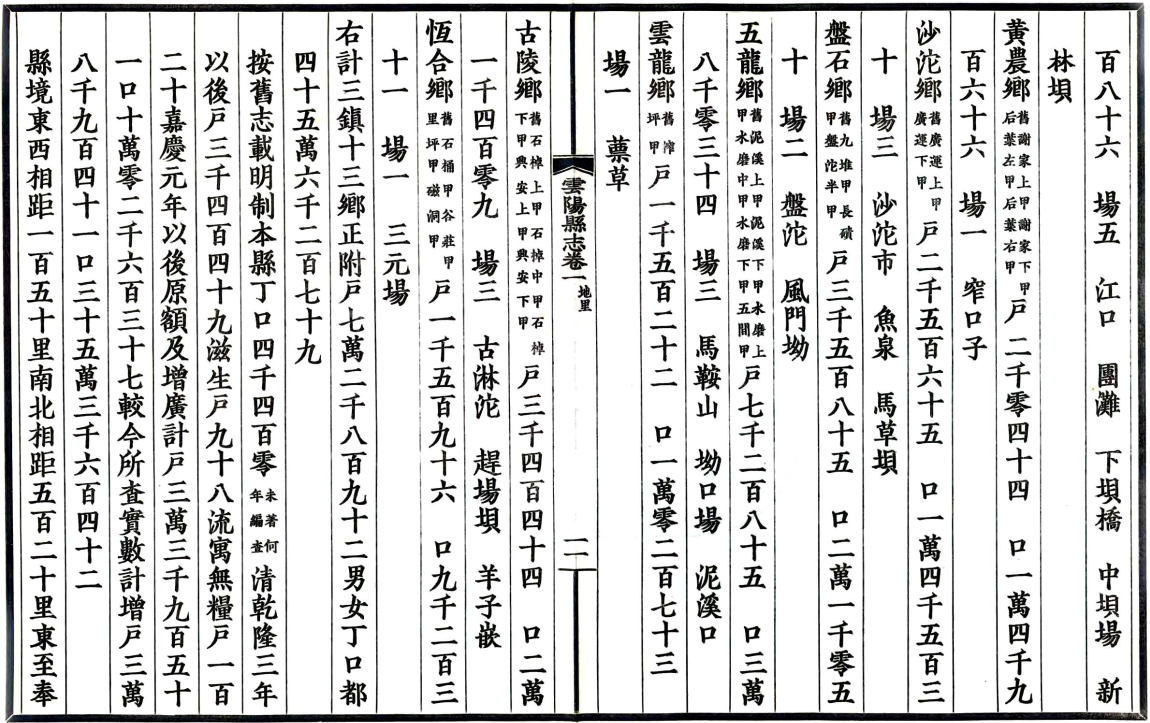 百八十六　場五　江口　團灘　下垻橋　中垻場　新
林垻
黃農鄉舊謝家上甲謝家下甲后葉左甲后葉右甲戶二千零四十四　口一萬四千九
百六十六　場一　窄口子
沙沱鄉舊廣運上甲廣運下甲戶二千五百六十五　口一萬四千五百三
十　場三　沙沱市　魚泉　馬草垻
盤石鄉舊九堆甲長磧甲盤沱半甲戶三千五百八十五　口二萬一千零五
十　場二　盤沱　風門坳
五龍鄉舊泥溪上甲泥溪下甲水磨上甲水磨中甲水磨下甲五間甲戶七千二百八十五　口三萬
八千零三十四　場三　馬鞍山　坳口場　泥溪口
雲龍鄉舊滹坪甲戶一千五百二十二　口一萬零二百七十三
場一　藁草
雲陽縣志卷一　地里　一二
古陵鄉舊石棹上甲石棹中甲石棹下甲興安上甲興安下甲戶三千四百四十四　口二萬
一千四百零九　場三　古淋沱　趕場垻　羊子嵌
恆合鄉舊石桶甲谷莊甲里坪甲磁洞甲戶一千五百九十六　口九千二百三
十一　場一　三元場
右計三鎮十三鄉正附戶七萬二千八百九十二男女丁口都
四十五萬六千二百七十九
按舊志載明制本縣丁口四千四百零未著何年編查清乾隆三年
以後戶三千四百四十九滋生戶九十八流寓無糧戶一百
二十嘉慶元年以後原額及增廣計戶三萬三千九百五十
一口十萬零二千六百三十七較今所查實數計增戶三萬
八千九百四十一口三十五萬三千六百四十二
縣境東西相距一百五十里南北相距五百二十里東至奉